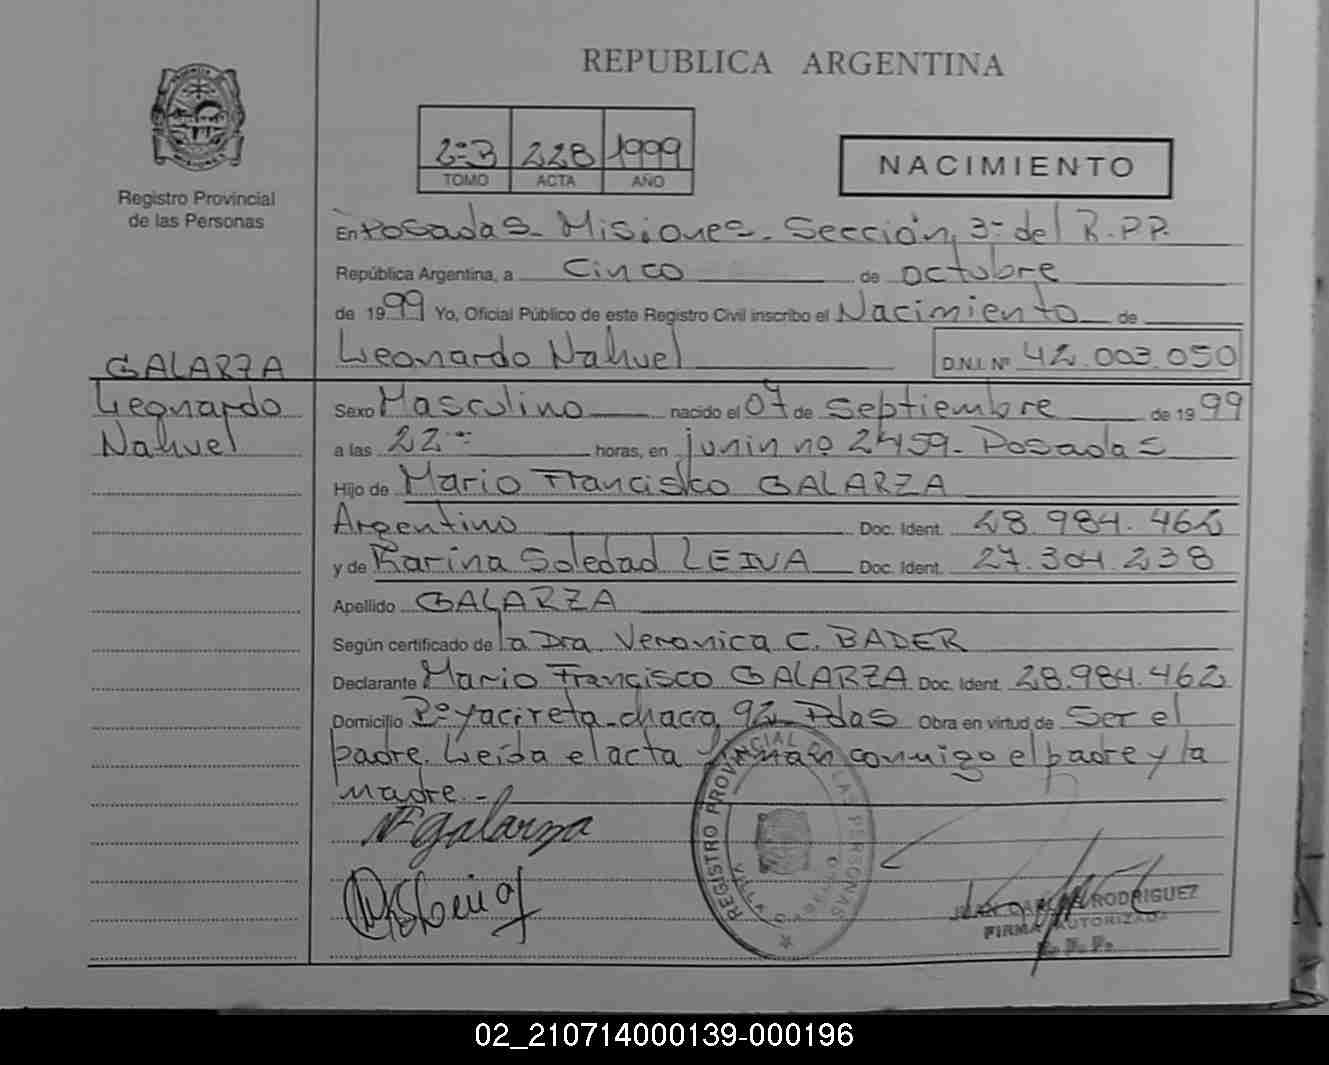 REPUBLICA ARGENTINA
2º B 228 1999
TOMO ACTA AÑO
NACIMIENTO
Registro Provincial
de las Personas
En Posadas - Misiones - Sección 3º del R.P.P.
República Argentina, a Cinco de octubre
de 1999 Yo, Oficial Público de este Registro Civil inscribo el Nacimiento de
Leonardo Nahuel D.N.I. Nº 42.003.050
GALARZA
Leonardo
Nahuel
Sexo Masculino nacido el 07 de septiembre de 1999
a las 22 horas, en junin nº 2459 - Posadas
Hijo de Mario Francisco GALARZA
Argentino Doc. Ident. 28.984.462
y de Karina Soledad LEIVA Doc. Ident. 27.304.238
Apellido GALARZA
Según certificado de la Dra Veronica C. BADER
Declarante Mario Francisco GALARZA Doc. Ident. 28.984.462
Domicilio Bº yacireta - chacra 92 - Pdas Obra en virtud de ser el
padre. Leída el acta firman conmigo el padre y la
madre.-
Galarza
REGISTRO PROVINCIAL DE LAS PERSONAS
RODRIGUEZ
FIRMA AUTORIZADA
02_210714000139-000196